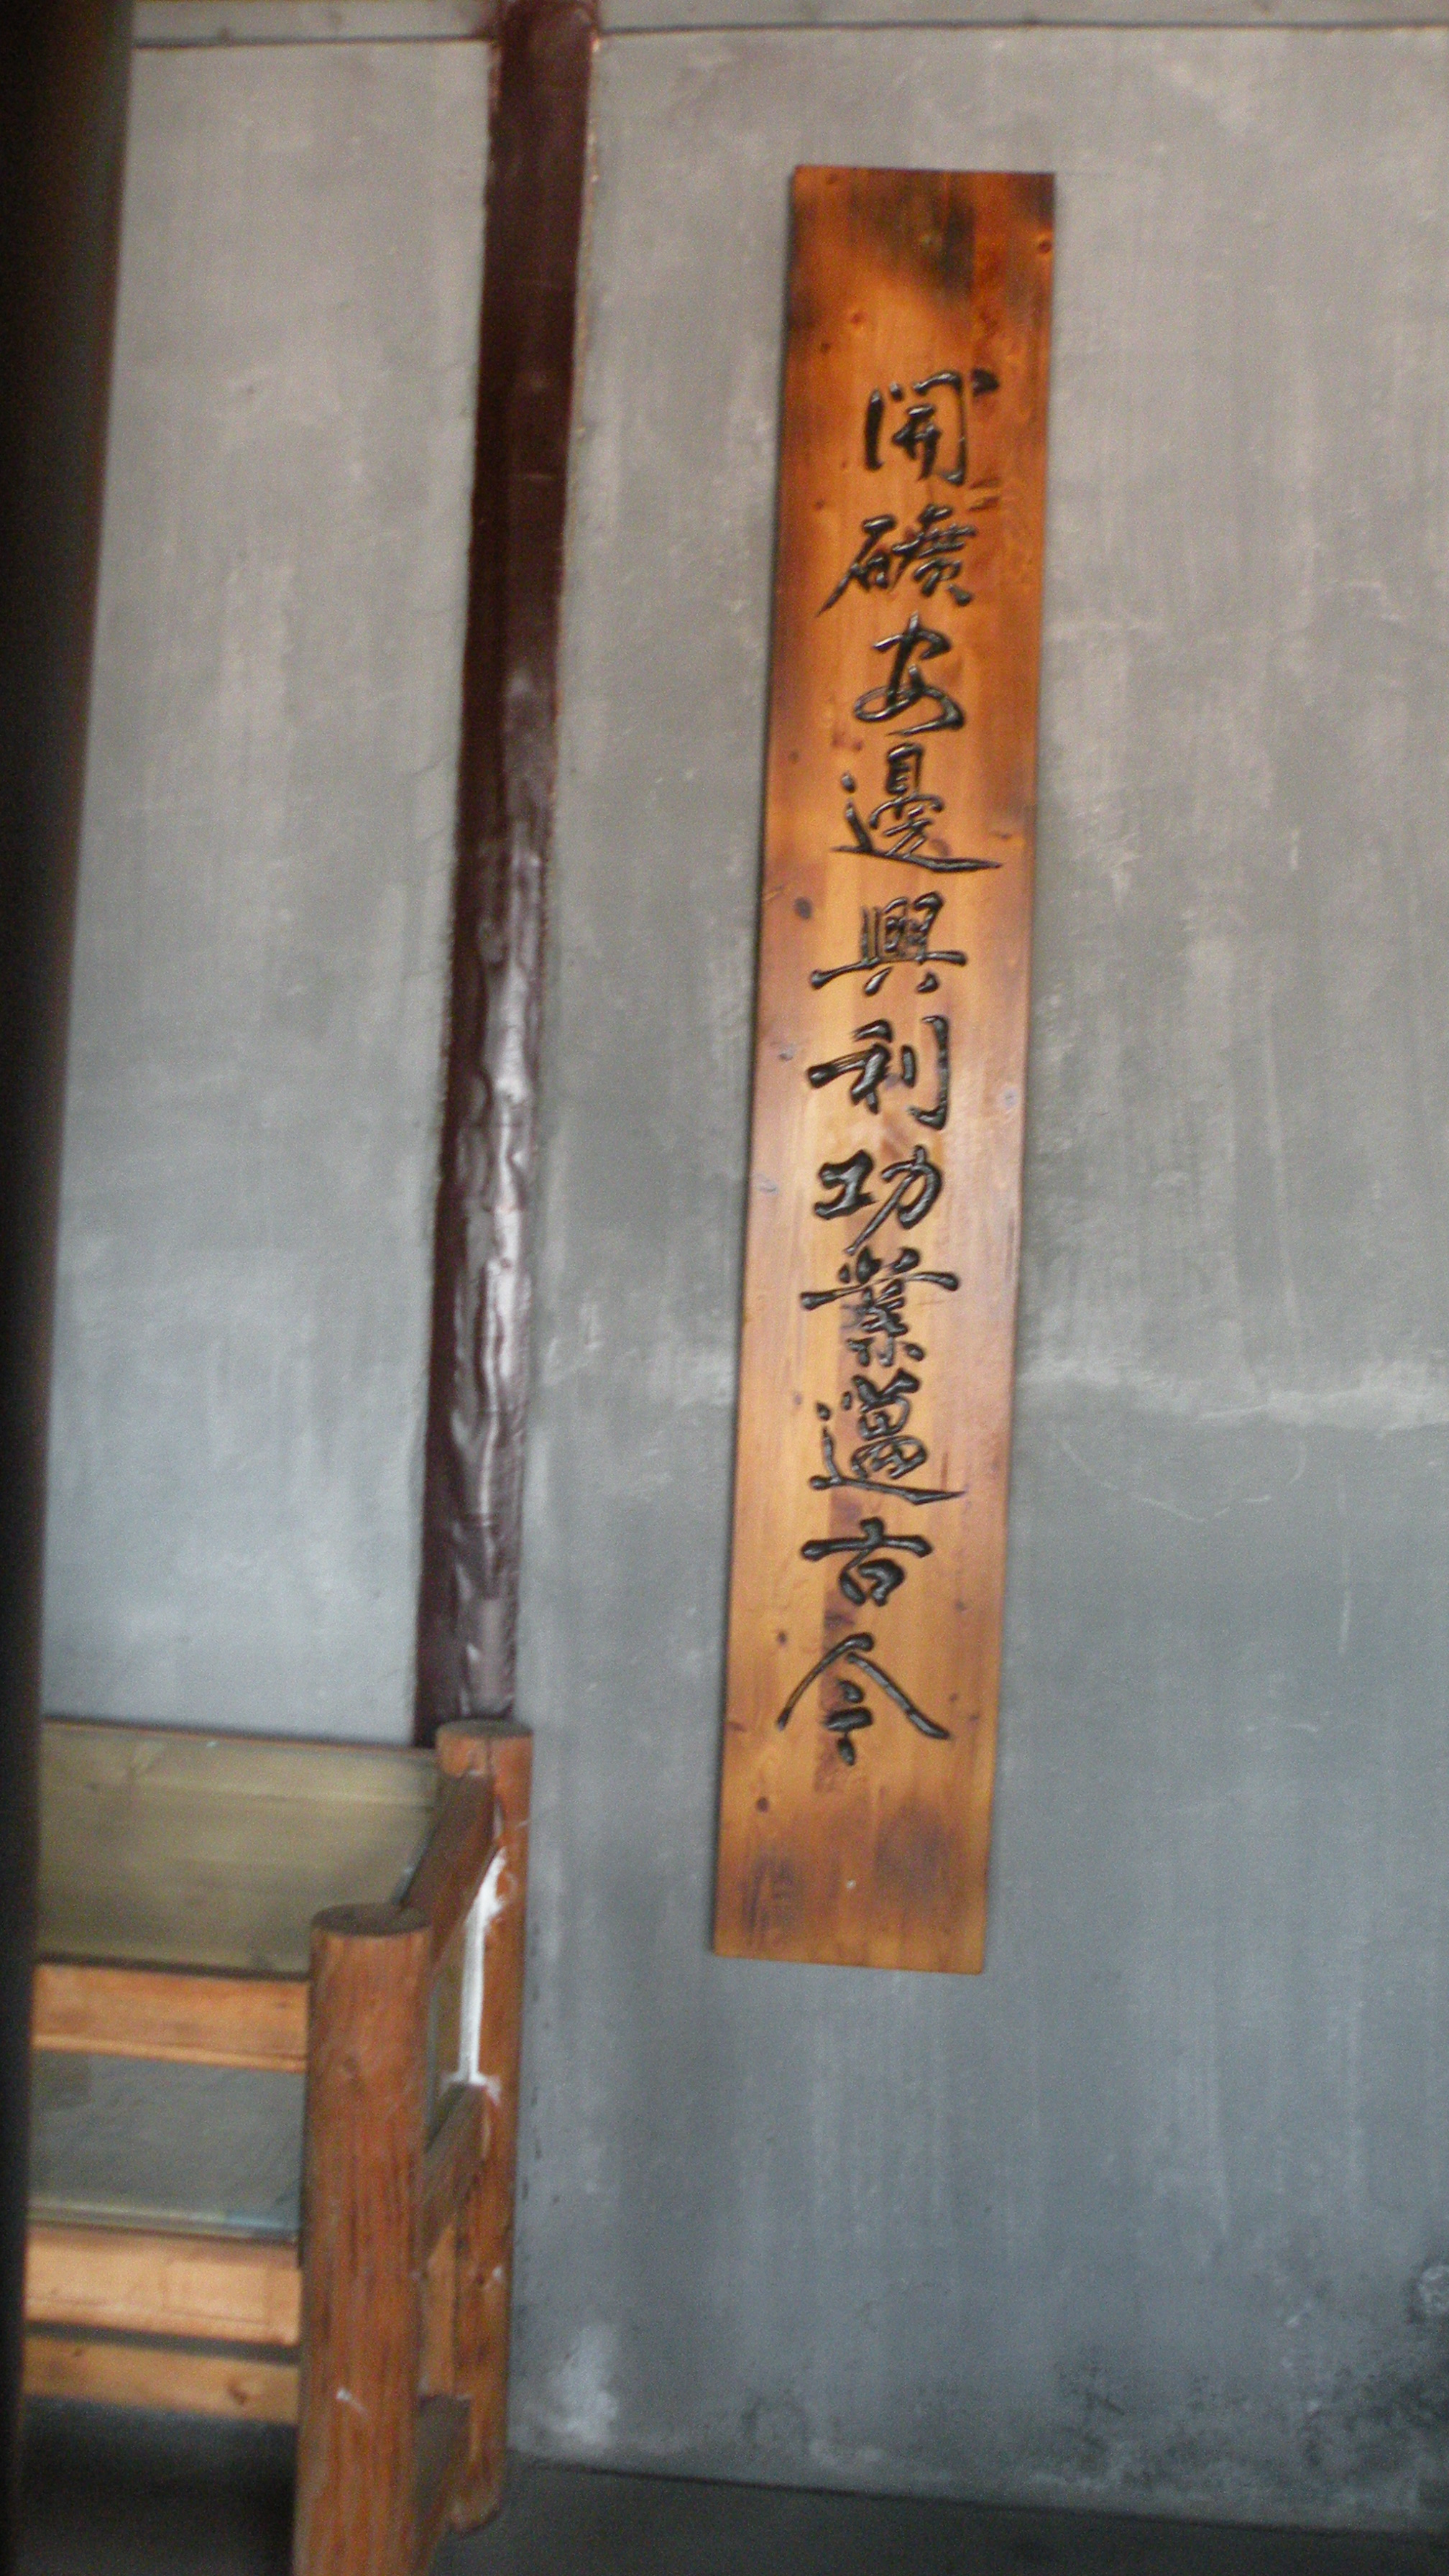 開礦安邊興利功業邁古今